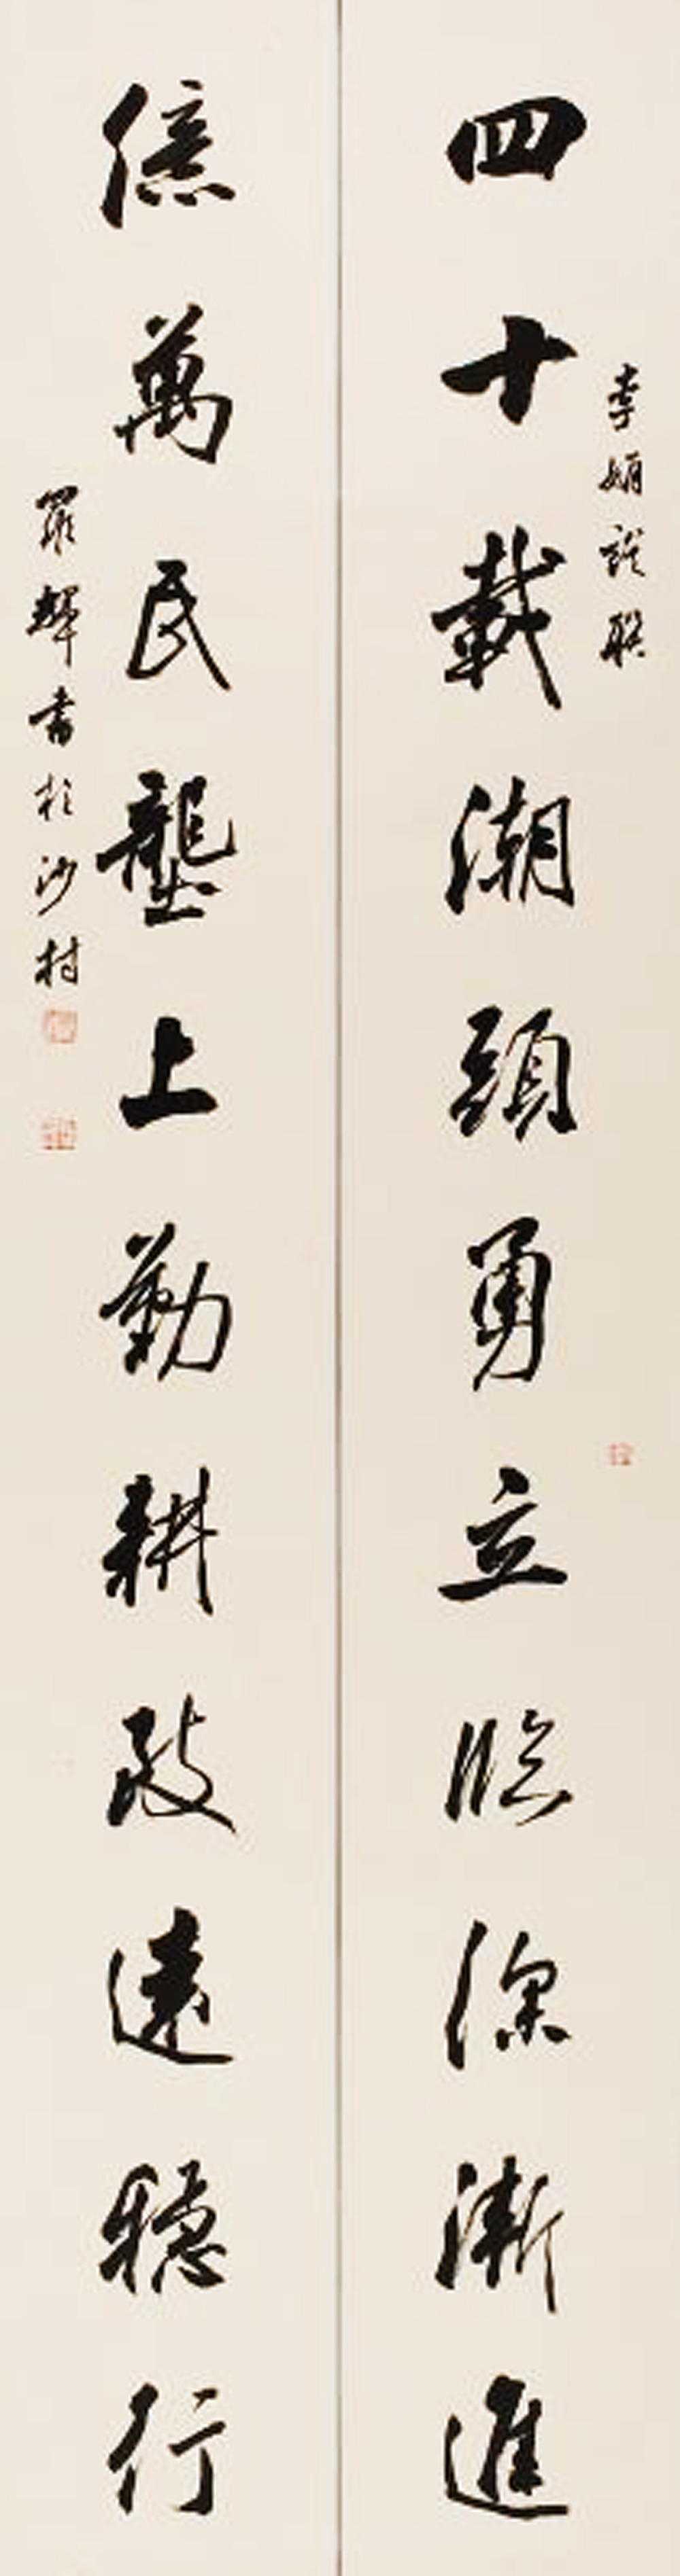 李娟聯
四十載潮頭勇立臨深漸進
億萬民壟上勤耕致遠穩行
羅輝書於沙村